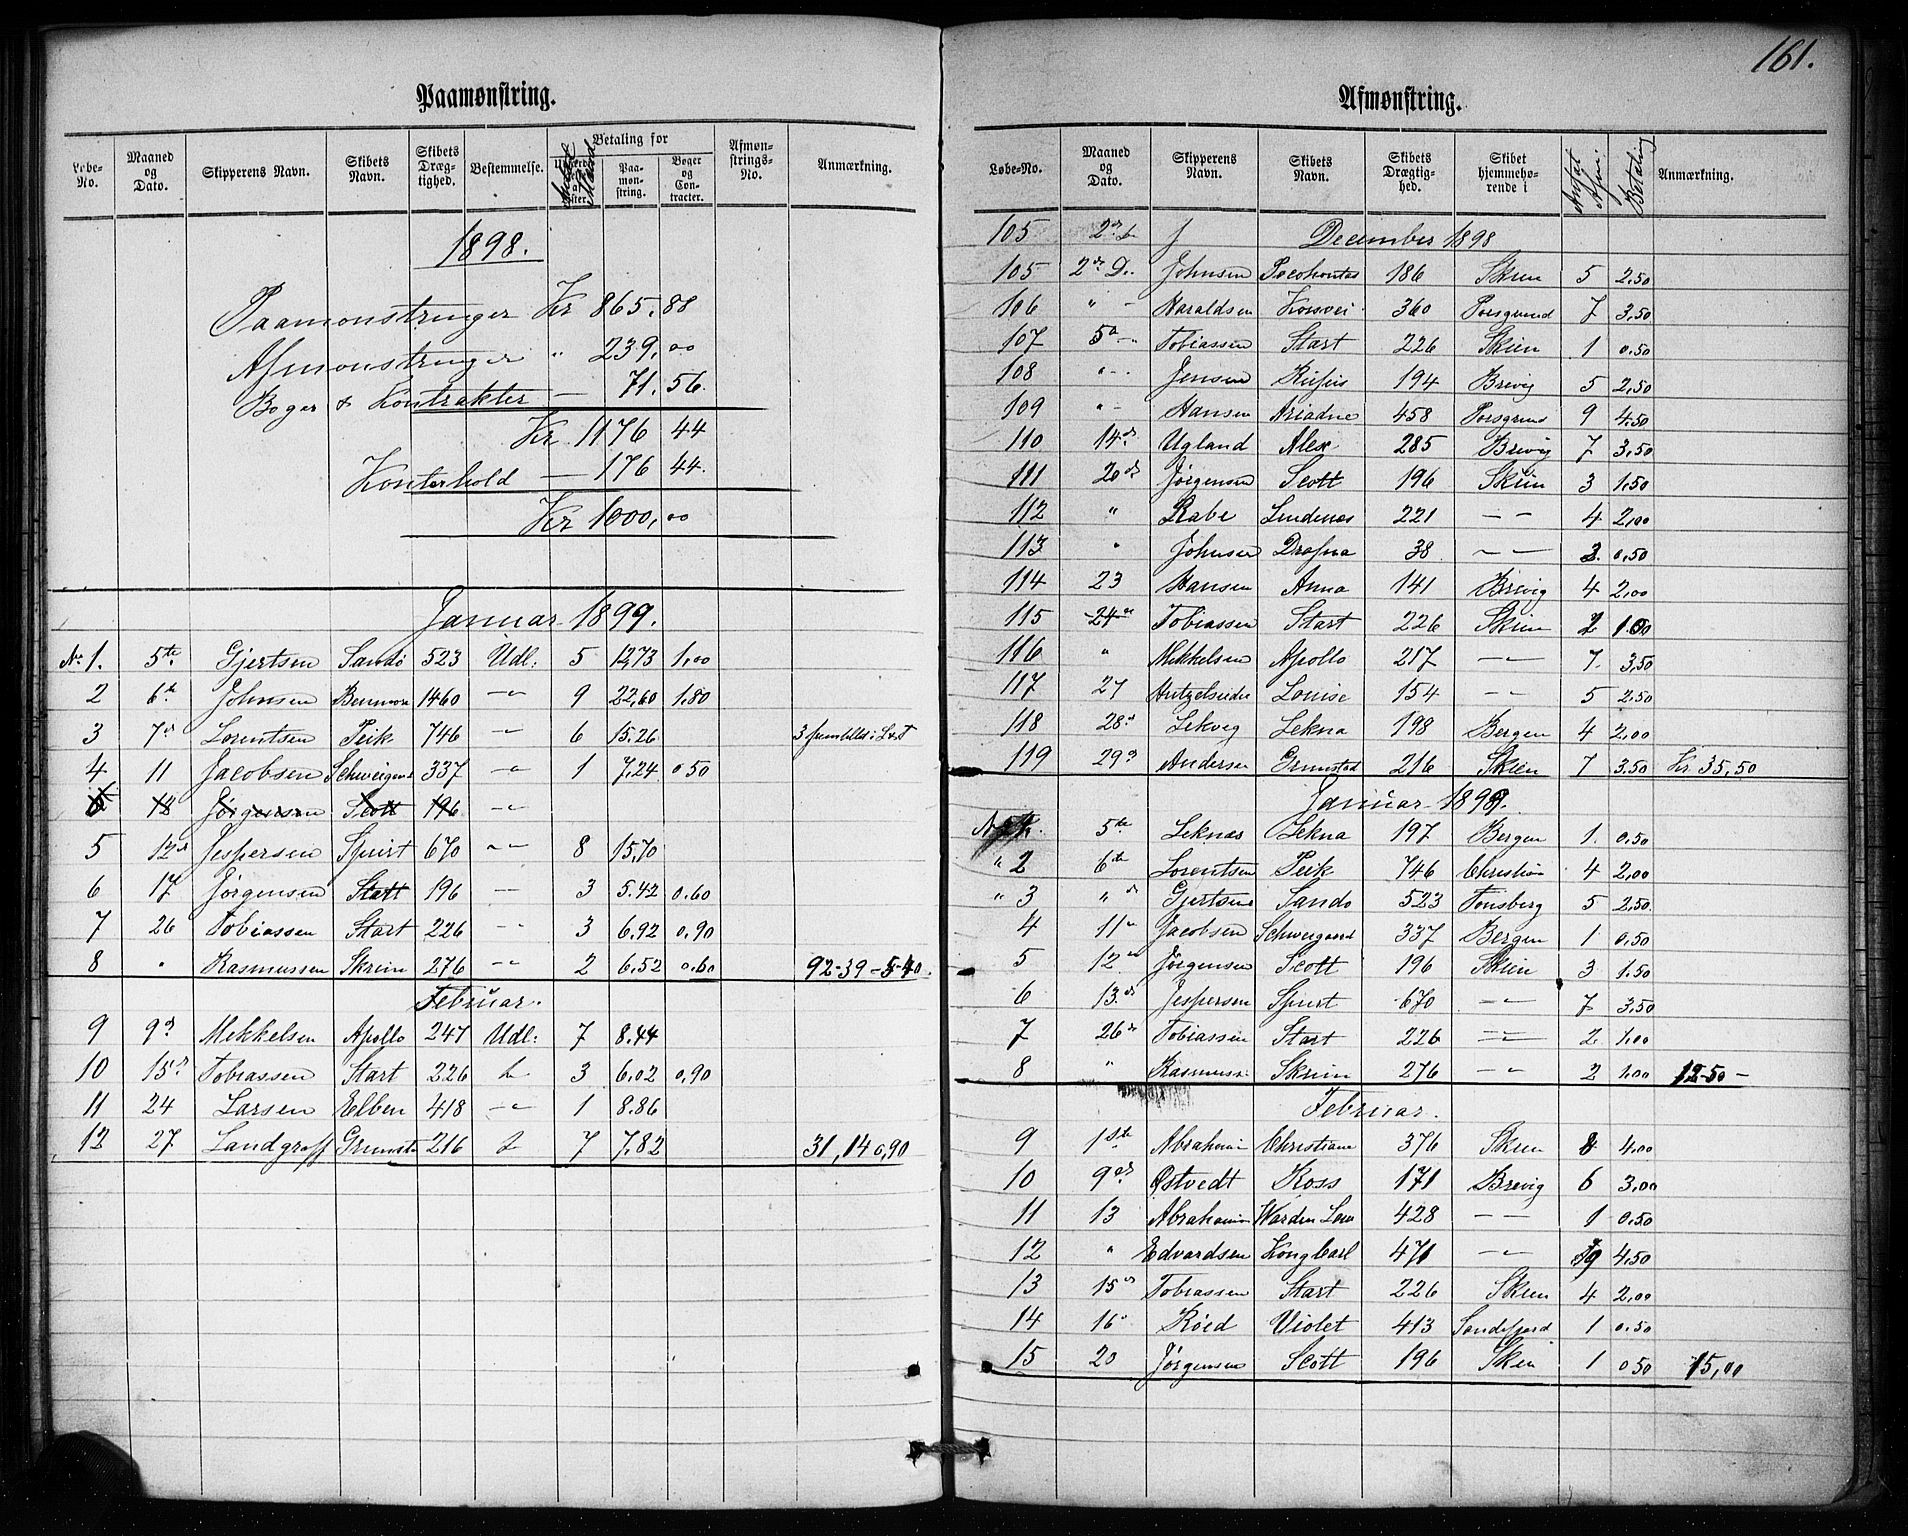 161.
Paamønstring.
Løbe-No. Maaned og Dato. Skipperens Navn. Skibets Navn. Skibets Drægtighed. Bestemmelse. Betaling for Paamønstring. Bøger og Contracter. Afmønstrings-No. Anmærkning.
1898.
Paamonstringer Kr 865.88
Afmonstringer " 239,00
Bøger & Kontrakter — 71.56.
Kr. 1176 44
Konterhold — 176 44.
Kr 1000,00
Januar 1899.
No 1. 5te Gjertsen Sandö 523 Udl: 5 12,73 1,00
2 6te Johnsen Benmore 1460 -"- 9 22,60 1,80
3 7de Lorentsen Peik 746 -"- 6 15,26
4 11 Jacobsen Schweigaard 337 -"- 1 7,24 0 50
5 12 Jørgensen Scott 196 -"-
5 12te Jespersen Spurt 670 -"- 8 15,70
6 17 Jørgensen Scott 196 — 3 5.42 0.60
7 26 Tobiassen Start 226 -"- 3 6,92 0,90
8 " Rasmussen Skrein 276 -"- 2 6,52 0.60 92-39-5-40.
Februar.
9 9de Mekkelsen Apollo 247 Udl: 7 8.44
10 15de Tobiassen Start 226 3 6,02 0,90
11 24 Larsen Elben 418 -"- 1 8.86
12 27 Landgraff Grimsta 216 7 7,82 31,14 0,90
Afmønstring.
Løbe-No. Maaned og Dato. Skipperens Navn. Skibets Navn. Skibets Drægtighed. Skibet hjemmehørende i Antal Betaling Anmærkning.
105 2de December 1898
105 2de D. Johnsen Pocohontas 186 Skien 5 2,50
106 " - Haraldsen Korsvei 360 Porsgrund 7 3,50
107 5 Tobiassen Start 226 Skien 1 0.50
108 " - Jensen Rufus 194 Brevig 5 2,50
109 " - Hansen Ariadne 458 Porsgrund 9 4,50
110 14de Ugland Alex 285 Brevig 7 3,50
111 20de Jørgensen Scott 196 Skien 3 1,50
112 " Rabe Lindenæs 221 -- 4 2,00
113 " Johnsen Drafna 38 -"- 2. 0,50
114 23 Hansen Anna 141 Brevig 4 2,00
115 24de Tobiassen Start 226 Skien 2 1.00
116 " Mikkelsen Apollo 217 -"- 7. 3,50
117 27 Louise 154 -"- 5 2,50
118 28de Lekvig Lekna 198 Bergen 4 2,00
119 29de Andersen Grimstad 216 Skien 7 3,50 Kr. 35,50
Januar 1899.
5te Leknæs Lekna 197 Bergen 1. 0,50
" 2 6te Lorentsen Peik 746 Christia 4 2,00
" 3 " Gjertsen Sando 523 Tønsberg 5 2,50
4 11 Jacobsen Schweigaard 337 Bergen 1 0,50
5 12 Jørgensen Scott 196 Skien 3 1.50
6 13de Jespersen Spurt 670 -"- 7 3,50
7 26de Tobiassen Start 226 -"- 2 1,00
8 " Rasmuss. Skrim 276 -"- 2 1,00 12-50-
Februar.
9 1ste Abraham Christiane 376 Skien 8 4,00
10 9de Østvedt Ross 171 Brevig 6 3,00
11 13 Abraham Warden Law 428 -- 1 0.50
12 " Edvardsen Kong Carl 471 -"- 9 4,50
13 15de Tobiassen Start 226 Skien 4 2,00
14 16 Röed Violet 413 Sandefjord 1 0.50
15 20 Jørgensen Scott 196 Skien 1 0 50 15,00